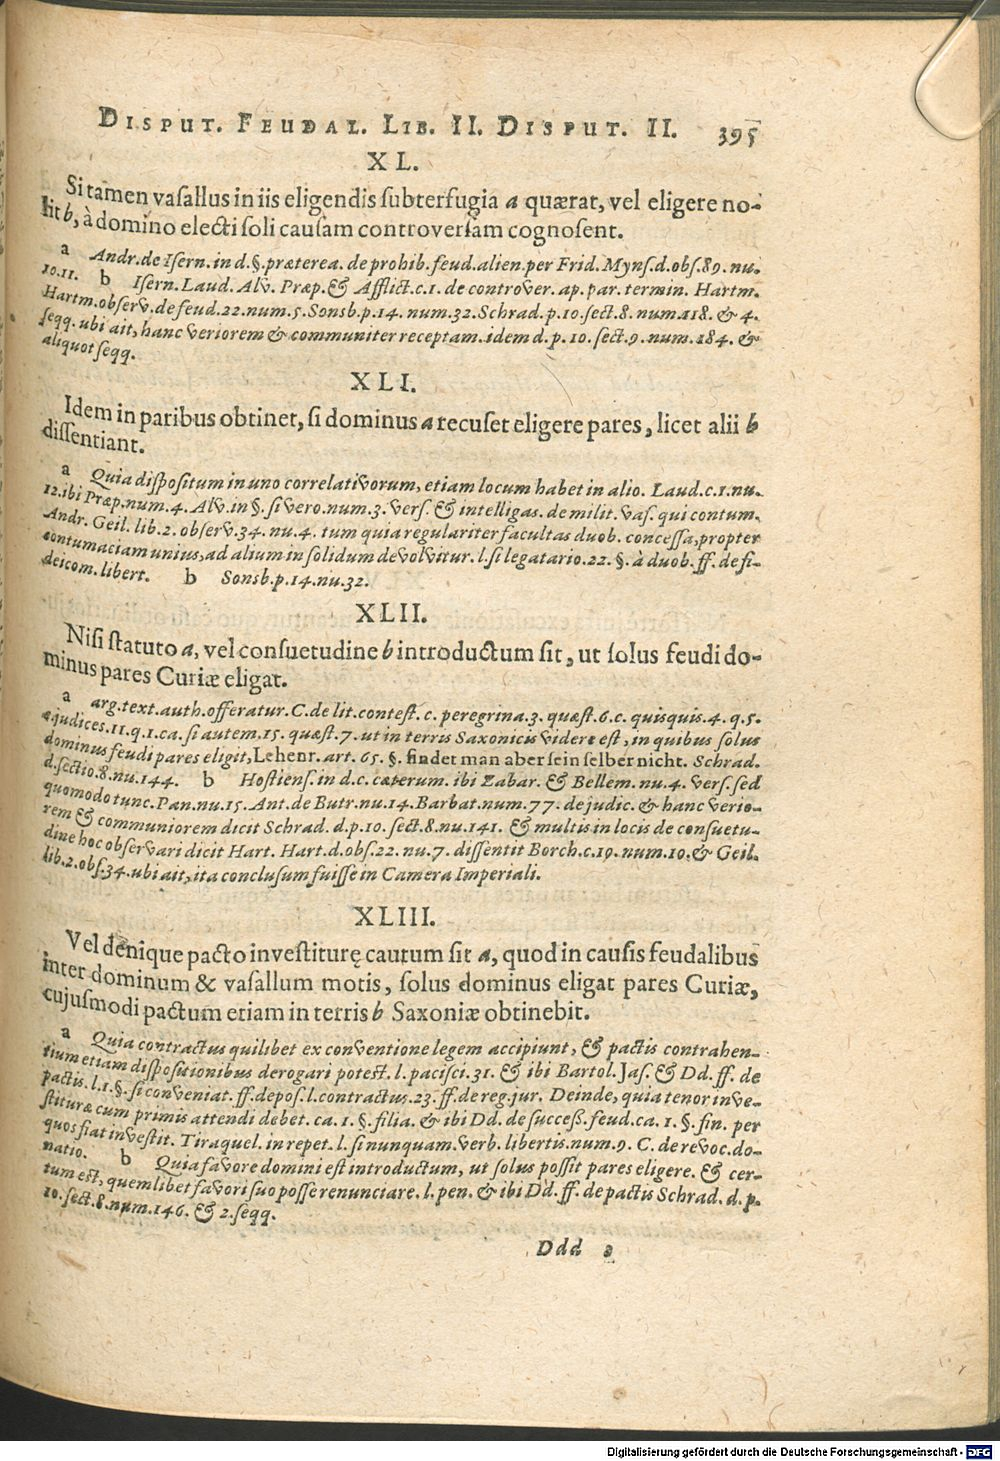 DISPUT. FEUDAL. LIB. II. DISPUT. II. 395
XL.
Si tamen vasallus in iis eligendis subterfugia a quærat, vel eligere no-
lit b, à domino electi soli causam controversam cognoscent.
a Andr. de Isern. in d. §. præterea. de prohib. feud. alien. per Frid. Myns. d. obs. 89. nu.
10. 11. b Isern. Laud. Alv. Præp. & Afflict. c. 1. de controver. ap. par. termin. Hartm.
Hartm. observ. de feud. 22. num. 5. Sonsb. p. 14. num. 32. Schrad. p. 10. sect. 8. num. 118. & 4.
seqq. ubi ait, hanc veriorem & communiter receptam. idem d. p. 10. sect. 9. num. 184. &
aliquot seqq.
XLI.
Idem in paribus obtinet, si dominus a recuset eligere pares, licet alii b
dissentiant.
a Quia dispositum in uno correlativorum, etiam locum habet in alio. Laud. c. 1. nu.
12. ibi Præp. num. 4. Alv. in §. si vero. num. 3. vers. & intelligas. de milit. vas. qui contum.
Andr. Geil. lib. 2. observ. 34. nu. 4. tum quia regulariter facultas duob. concessa, propter
contumaciam unius, ad alium in solidum devolvitur. l. si legatario. 22. §. à duob. ff. de fi-
deicom. libert. b Sonsb. p. 14. nu. 32.
XLII.
Nisi statuto a, vel consuetudine b introductum sit, ut solus feudi do-
minus pares Curiæ eligat.
a arg. text. auth. offeratur. C. de lit. contest. c. peregrina. 3. quæst. 6. c. quisquis. 4. q. 5.
e judices. 11. q. 1. ca. si autem. 15. quæst. 7. ut in terris Saxonicis videre est, in quibus solus
dominus feudi pares eligit, Lehenr. art. 65. §. findet man aber sein selber nicht. Schrad.
d. sectio. 8. nu. 144. b Hostiens. in d. c. cæterum. ibi Zabar. & Bellem. nu. 4. vers. sed
quomodo tunc. Pan. nu. 15. Ant. de Butr. nu. 14. Barbat. num. 77. de judic. & hanc verio-
rem & communiorem dicit Schrad. d. p. 10. sect. 8. nu. 141. & multis in locis de consuetu-
dine hoc observari dicit Hart. Hart. d. obs. 22. nu. 7. dissentit Borch. c. 19. num. 10. & Geil.
lib. 2. obs. 34. ubi ait, ita conclusum fuisse in Camera Imperiali.
XLIII.
Vel denique pacto investiturę cautum sit a, quod in causis feudalibus
inter dominum & vasallum motis, solus dominus eligat pares Curiæ,
cujusmodi pactum etiam in terris b Saxoniæ obtinebit.
a Quia contractus quilibet ex conventione legem accipiunt, & pactis contrahen-
tium etiam dispositionibus derogari potest. l. pacisci. 31. & ibi Bartol. Jas. & Dd. ff. de
pactis. l. 1. §. si conveniat. ff. depos. l. contractus. 23. ff. de reg. jur. Deinde, quia tenor inve-
stituræ cum primis attendi debet. ca. 1. §. filia. & ibi Dd. de success. feud. ca. 1. §. fin. per
quos fiat investit. Tiraquel. in repet. l. si nunquam. verb. libertis. num. 9. C. de revoc. do-
natio. b Quia favore domini est introductum, ut solus possit pares eligere. & cer-
tum est, quemlibet favori suo posse renunciare. l. pen. & ibi Dd. ff. de pactis Schrad. d. p.
10. sect. 8. num. 146. & 2. seqq.
Ddd 2
Digitalisierung gefördert durch die Deutsche Forschungsgemeinschaft - DFG